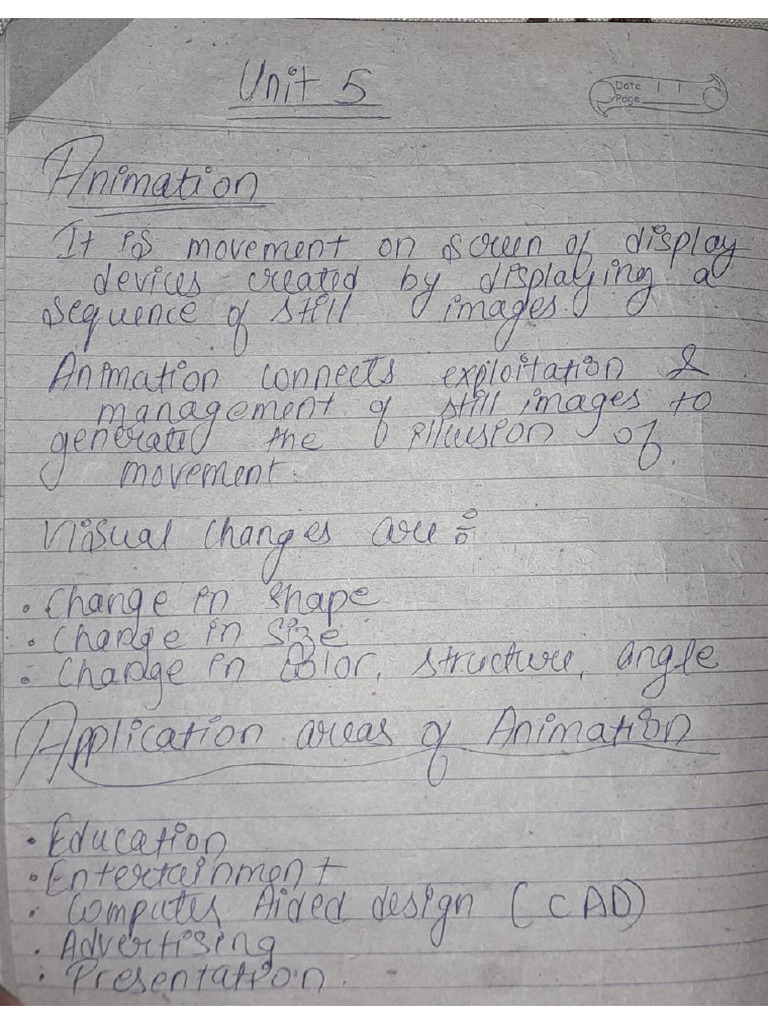 Unit 5
Date
Page
Animation
It is movement on screen of display
devices created by displaying a
sequence of still images.
Animation connects exploitation &
management of still images to
generate the illusion of
movement.
Visual changes are :
• Change in shape
• Change in size
• Change in color, structure, angle
Application areas of Animation
• Education
• Entertainment
• Computer Aided design (CAD)
• Advertising
• Presentation.